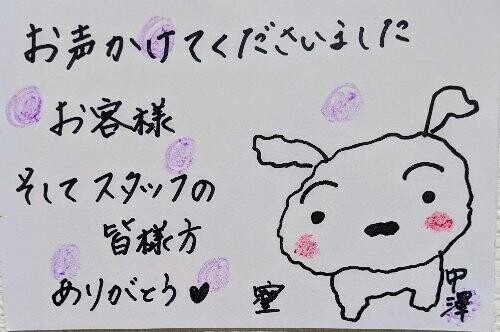 お声かけてくださいました
お客様
そしてスタッフの
皆様方
ありがとう♥
中澤